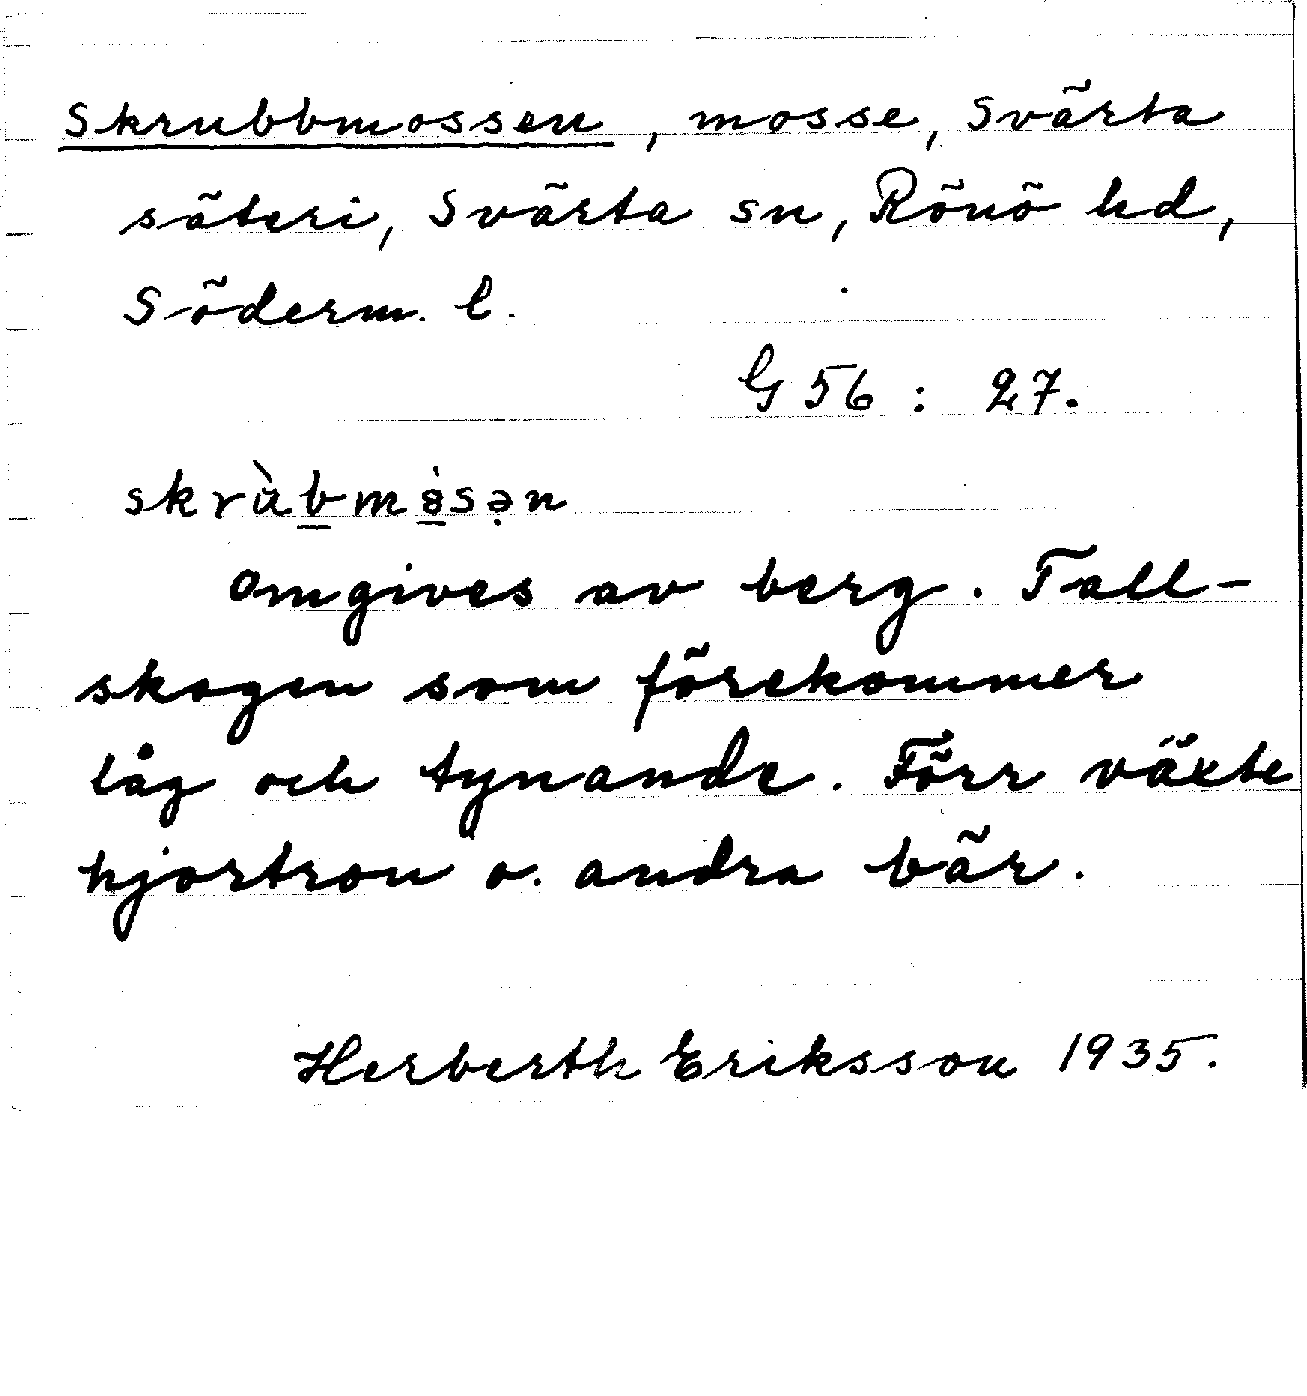 Skrubbmossen, mosse, Svärta
säteri, Svärta sn, Rönö hd,
Söderm. l.
G 56 : 27.
skrùbmòsən
Omgives av berg. Tall-
skogen som förekommer
låg och tynande. Förr växte
hjortron o. andra bär.
Herberth Eriksson 1935.